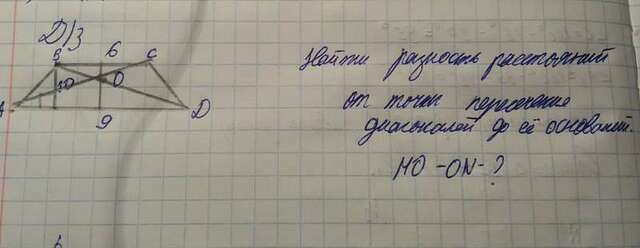 Д/З
B 6 C
10 O
A 9 D
Найти разность расстояний
от точки пересечение
диагоналей до её оснований.
MO - ON - ?